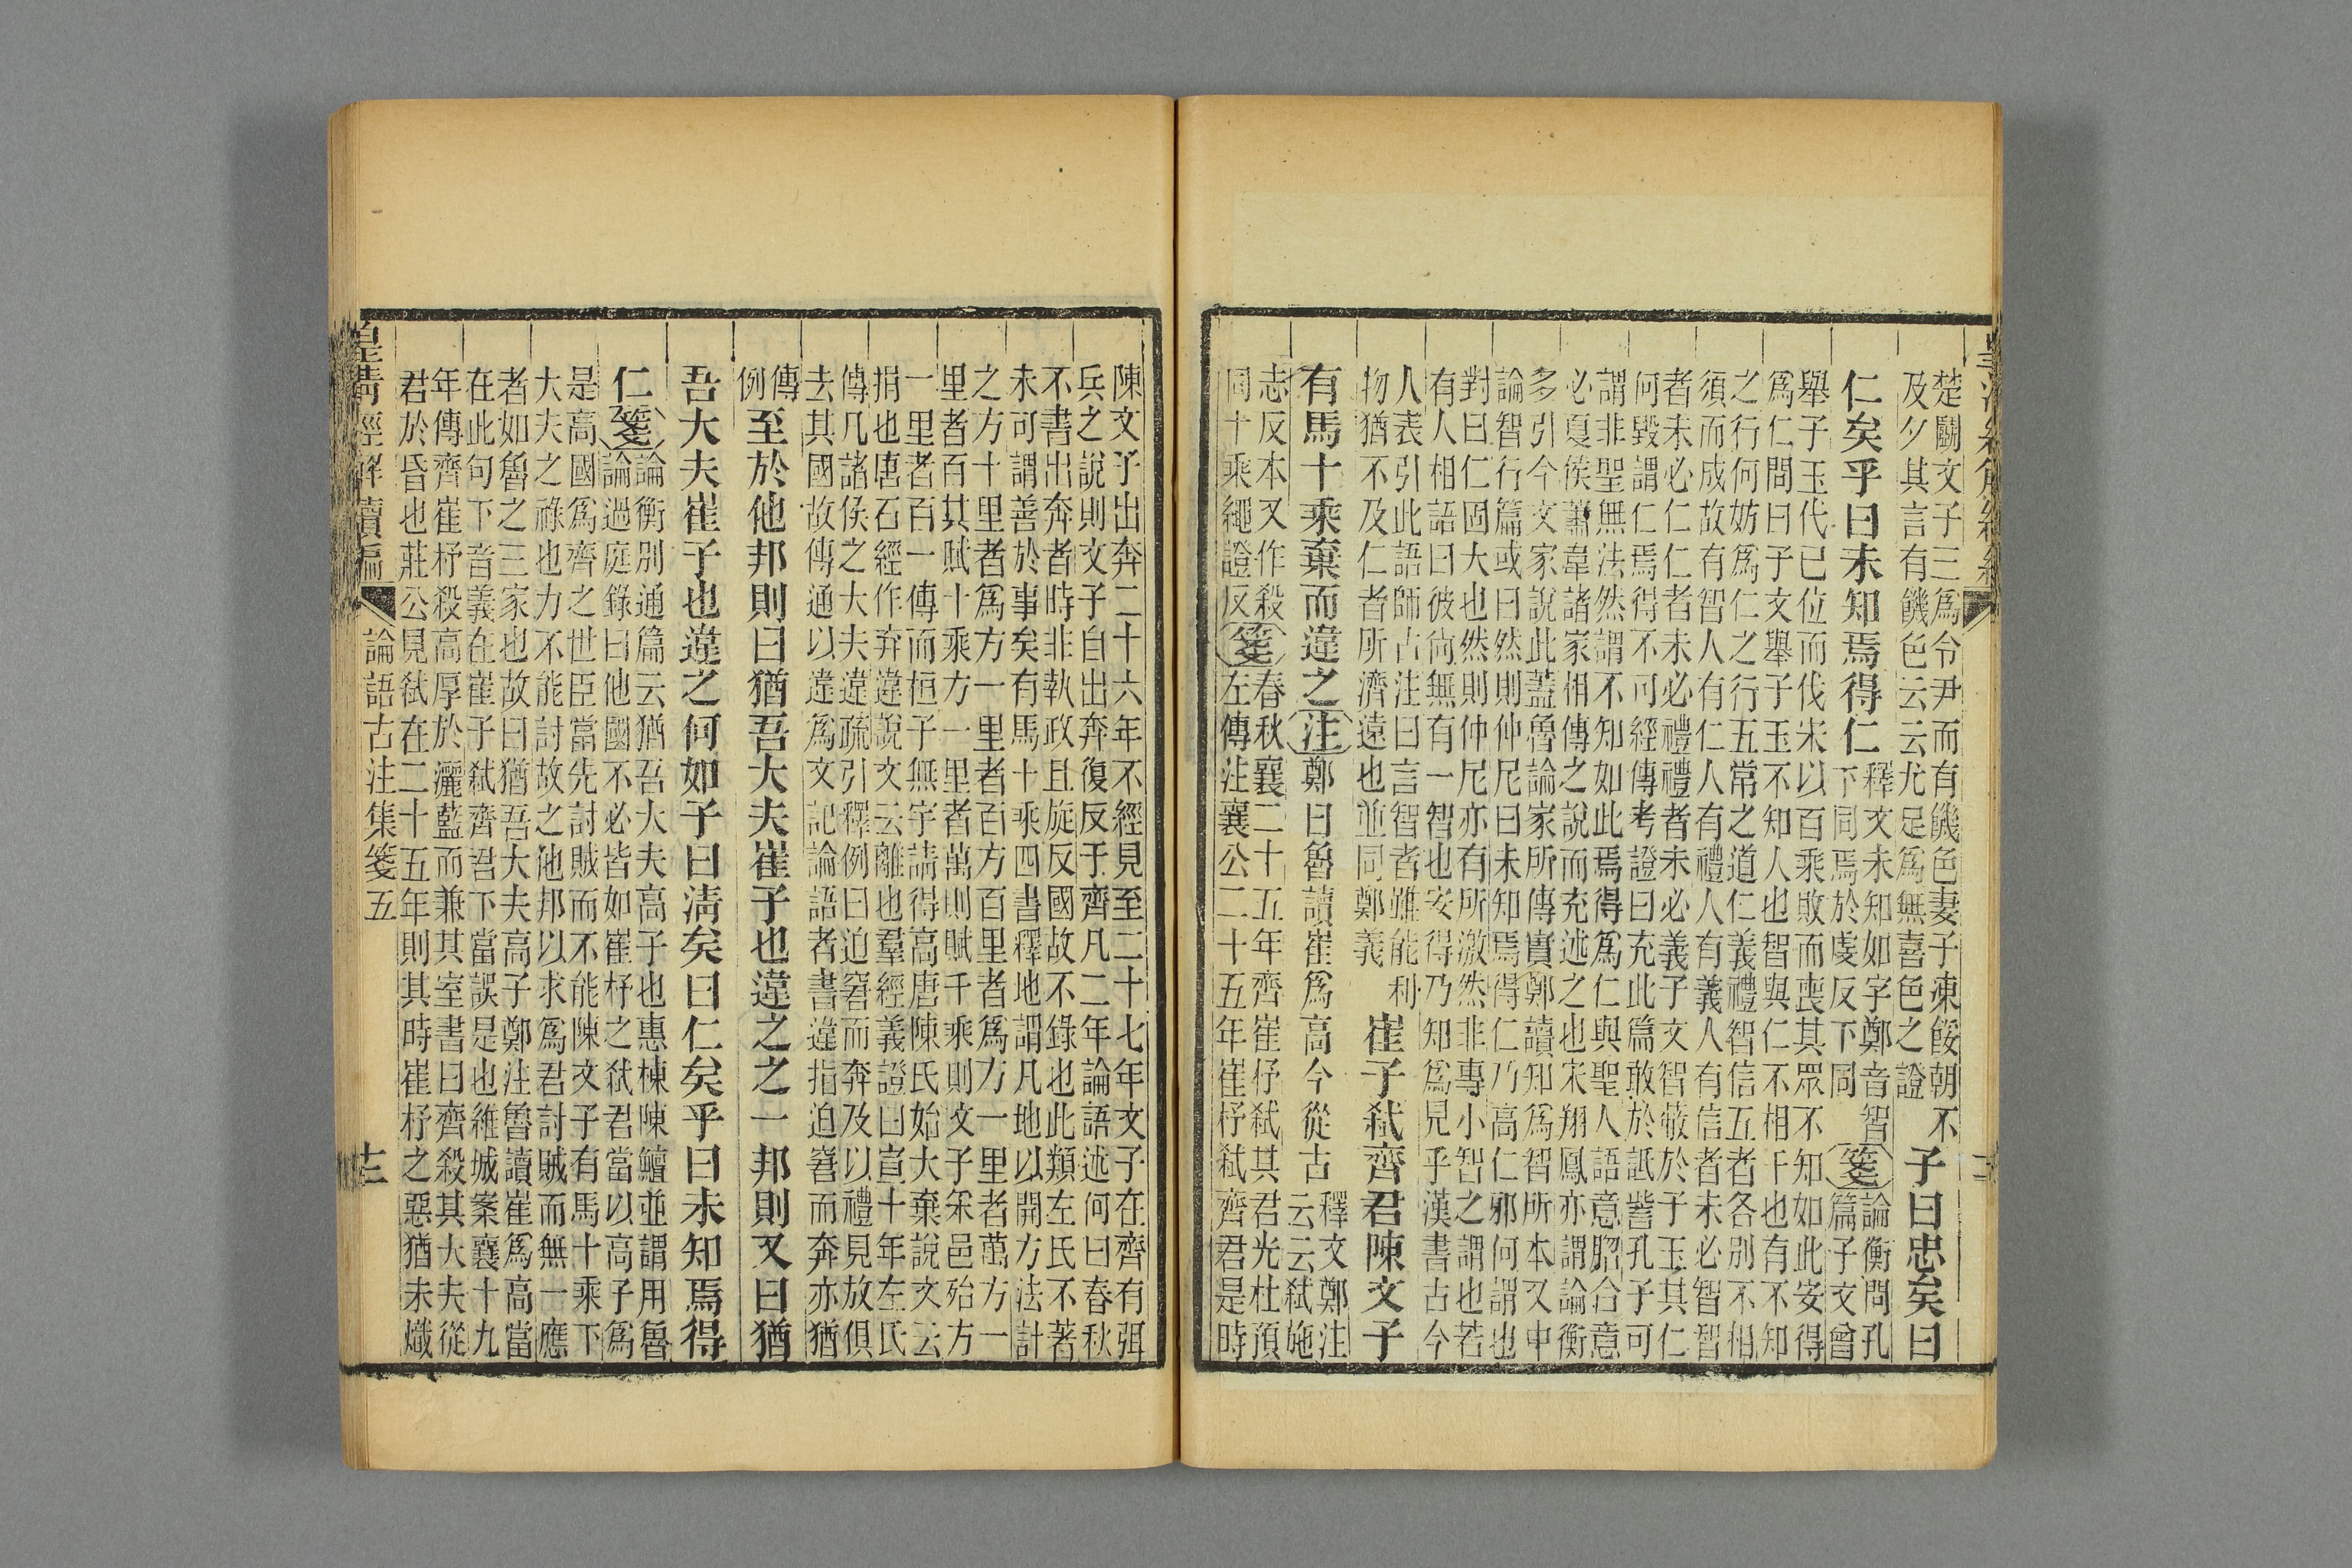 楚鬭文子三爲令尹而有饑色妻子凍餒朝不
及夕其言有饑色云云尤足爲無喜色之證
子曰忠矣曰
仁矣乎曰未知焉得仁
釋文未知如字鄭音智
下同焉於虔反下同
箋
論衡問孔
篇子文曾
舉子玉代已位而伐宋以百乘敗而喪其眾不知如此安得
爲仁問曰子文舉子玉不知人也智與仁不相干也有不知
之行何妨爲仁之行五常之道仁義禮智信五者各別不相
須而成故有智人有仁人有禮人有義人有信者未必智智
者未必仁仁者未必禮禮者未必義子文智蔽於子玉其仁
何毀謂仁焉得不可經傳考證曰充此篇敢於詆訾孔子可
謂非聖無法然謂不知如此焉得爲仁與聖人語意脗合意
必夏侯蕭韋諸家相傳之說而充述之也宋翔鳳亦謂論衡
多引今文家說此蓋魯論家所傳實鄭讀知爲智所本又申
論智行篇或曰然則仲尼曰未知焉得仁乃高仁邪何謂也
對曰仁固大也然則仲尼亦有所激然非專小智之謂也若
有人相語曰彼尚無有一智也安得乃知爲見乎漢書古今
人表引此語師古注曰言智者雖能利
物猶不及仁者所濟遠也並同鄭義
崔子弑齊君陳文子
有馬十乘棄而違之
注
鄭曰魯讀崔爲高今從古
釋文鄭注
云云弑施
志反本又作殺
同十乘繩證反
箋
春秋襄二十五年齊崔杼弑其君光杜預
左傳注襄公二十五年崔杼弑齊君是時
陳文子出奔二十六年不經見至二十七年文子在齊有弭
兵之說則文子自出奔復反于齊凡二年論語述何曰春秋
不書出奔者時非執政且旋反國故不錄也此類左氏不著
未可謂善於事矣有馬十乘四書釋地謂凡地以開方法計
之方十里者爲方一里者百方百里者爲方一里者萬方一
里者百其賦十乘方一里者萬則賦千乘則文子采邑殆方
一里者百一傳而桓子無宇請得高唐陳氏始大棄說文云
捐也唐石經作弃違說文云離也羣經義證曰宣十年左氏
傳凡諸侯之大夫違疏引釋例曰迫窘而奔及以禮見放俱
去其國故傳通以違爲文記論語者書違指迫窘而奔亦猶
傳
例
至於他邦則曰猶吾大夫崔子也違之之一邦則又曰猶
吾大夫崔子也違之何如子曰淸矣曰仁矣乎曰未知焉得
仁
箋
論衡別通篇云猶吾大夫高子也惠棟陳鱣並謂用魯
論過庭錄曰他國不必皆如崔杼之弑君當以高子爲
是高國爲齊之世臣當先討賊而不能陳文子有馬十乘下
大夫之祿也力不能討故之他邦以求爲君討賊而無一應
者如魯之三家也故曰猶吾大夫高子鄭注魯讀崔爲高當
在此句下音義在崔子弑齊君下當誤是也維城案襄十九
年傳齊崔杼殺高厚於灑藍而兼其室書曰齊殺其大夫從
君於昏也莊公見弑在二十五年則其時崔杼之惡猶未熾
皇淸經解續編
論語古注集箋五